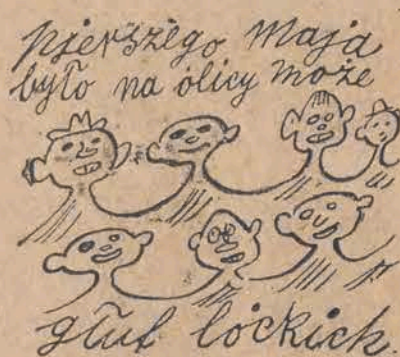 pierszego maja
było na ólicy może
głuf lóckich.